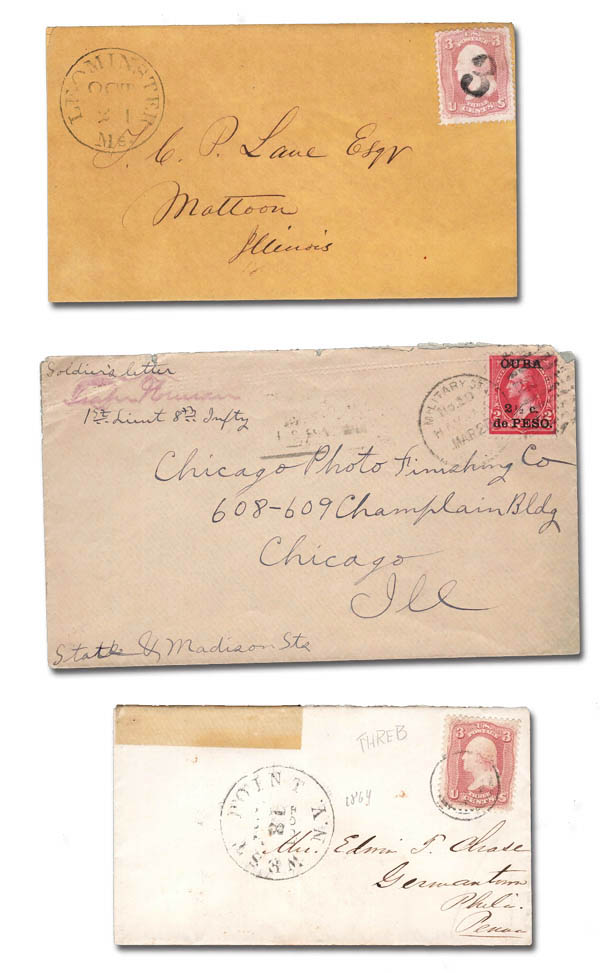 LEOMINSTER
OCT
21
Ms.
3 U.S. 3
3
U THREE S
CENTS
T. C. P. Lane Esqr
Mattoon
Illinois
Soldier's letter
1st Lieut 8th Infty
MILITARY
MAR 2
CUBA
2 2
2½ c.
de PESO.
Chicago Photo Finishing Co
608-609 Champlain Bldg
Chicago
Ill
State & Madison Sts
THREB
1864
WEST POINT N.Y.
3 U.S. 3
U THREE S
CENTS
Edwin T. Chase
Germantown
Phila.
Penna